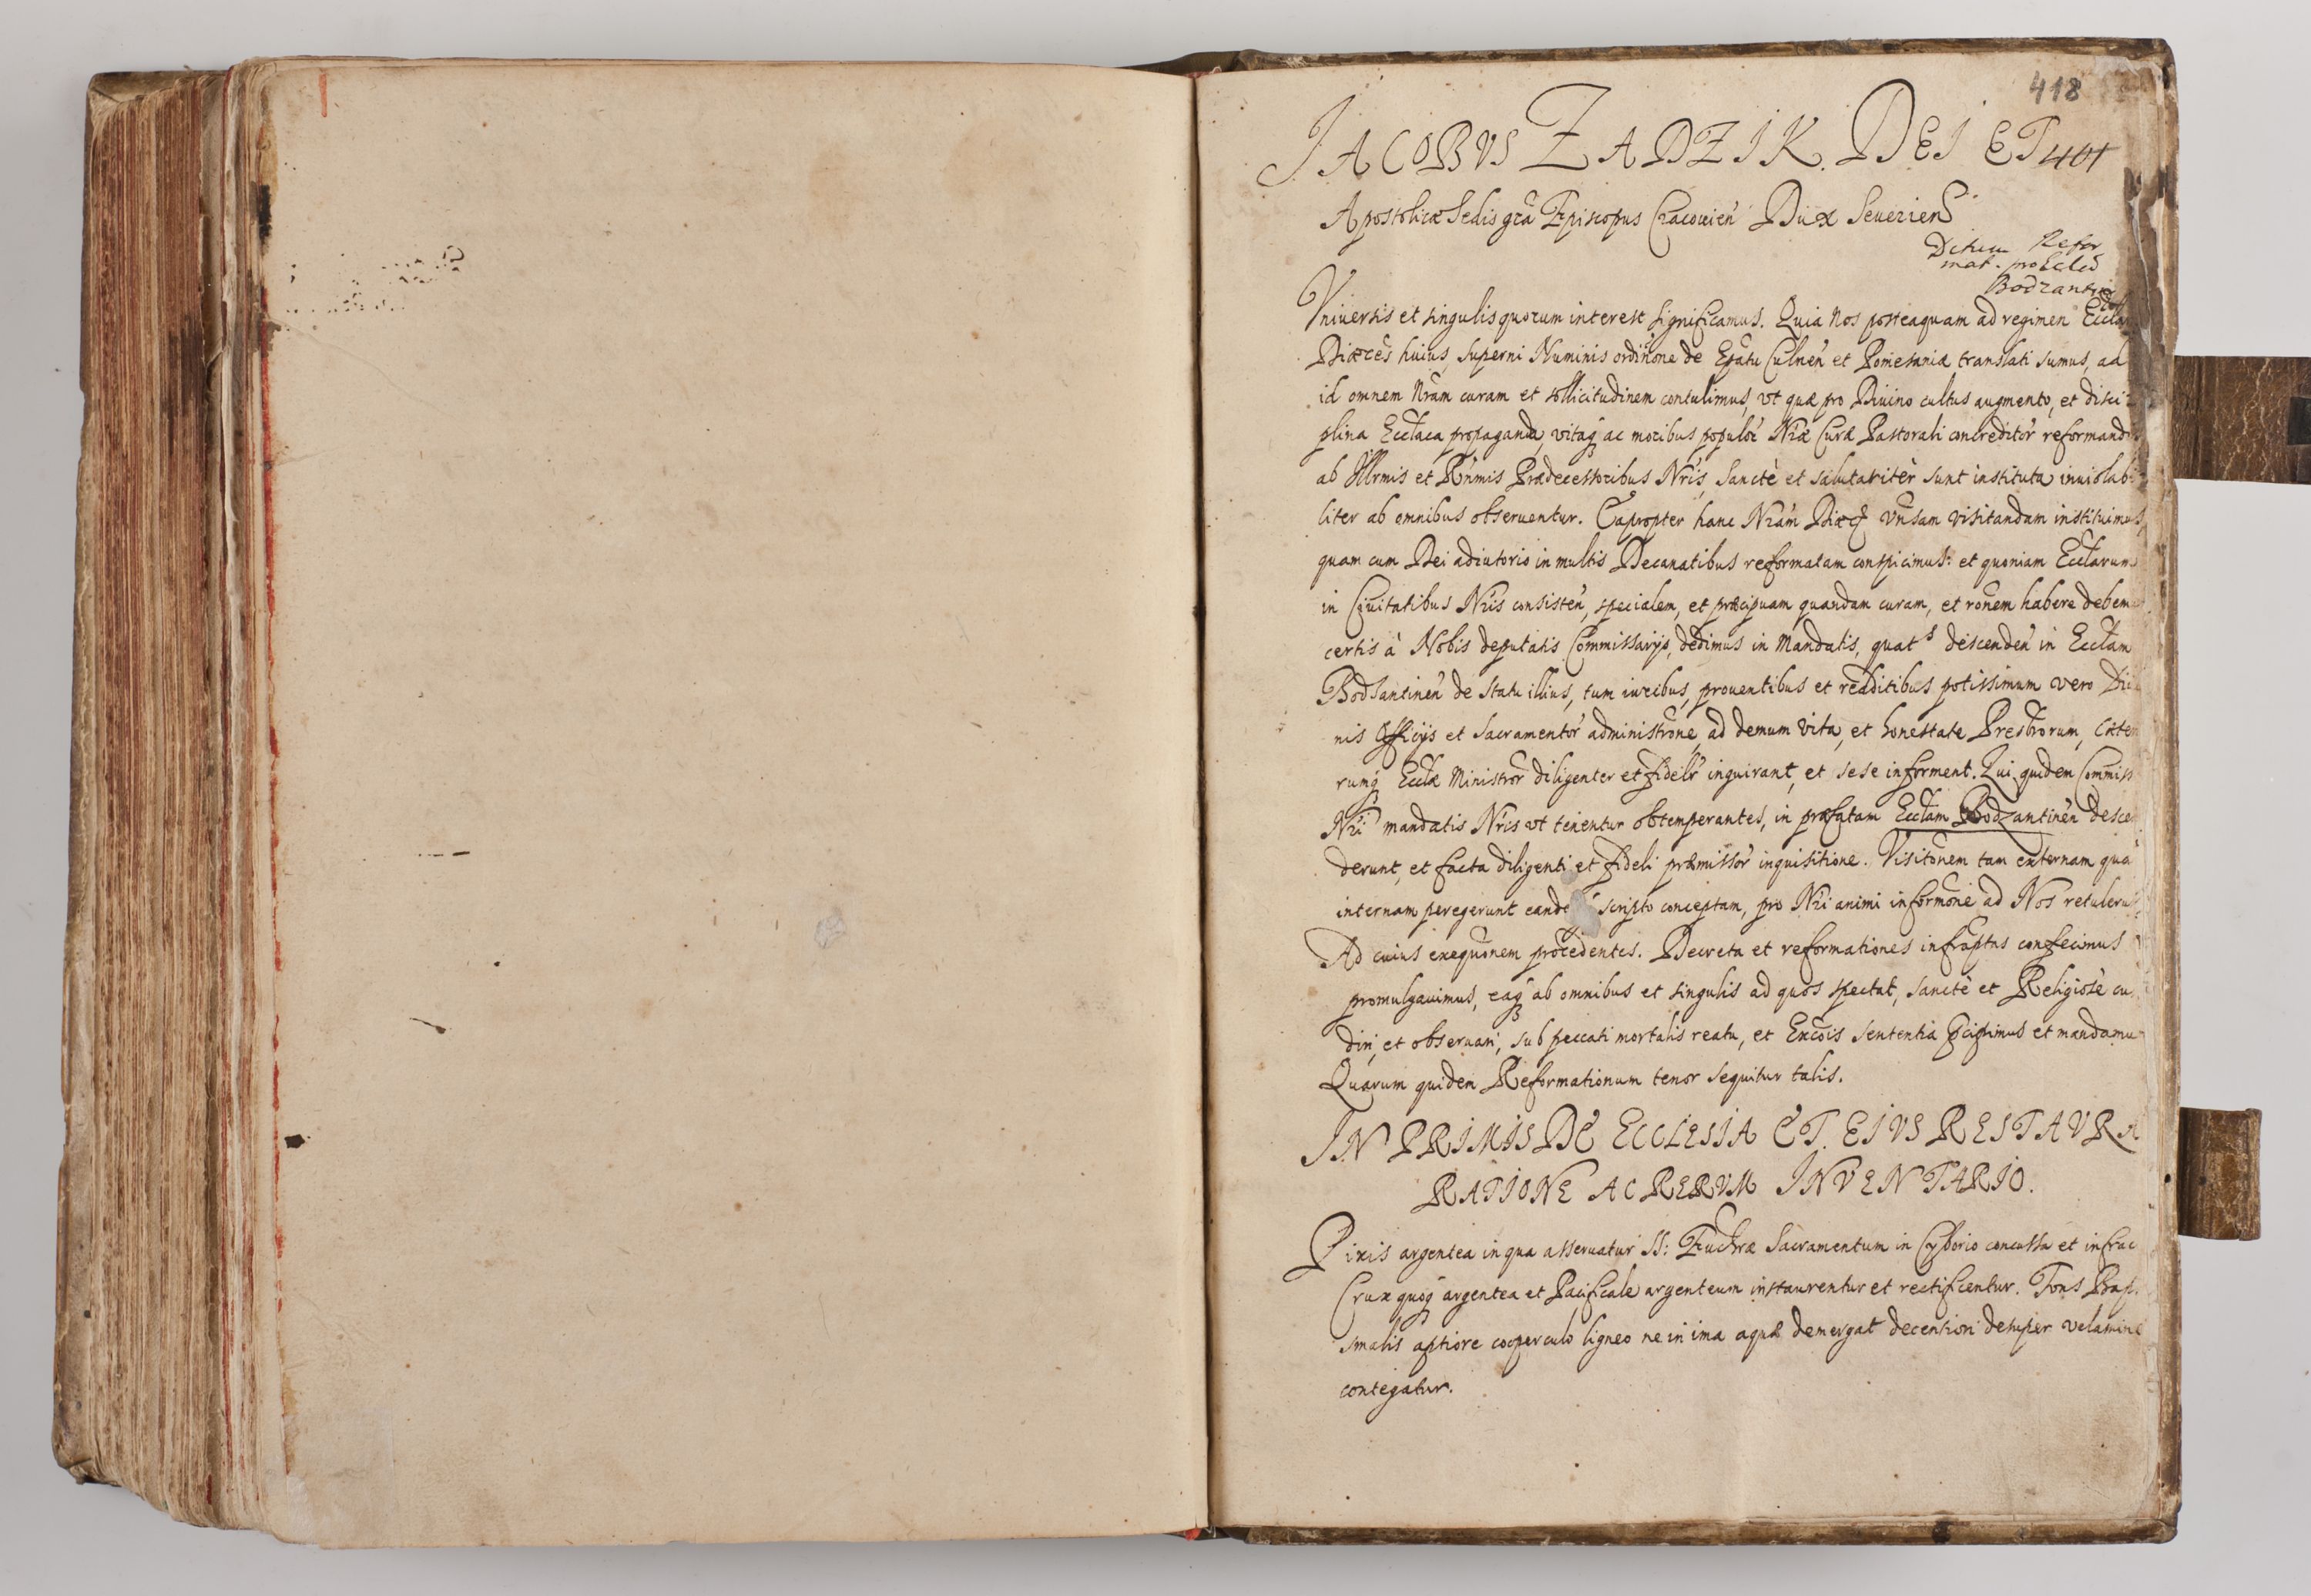 418
JACOBVS ZADZIK. DEI ET 401
Apostolicæ Sedis gr̃a Episcopus Cracouien̄ Dux Seuerien̄
Refor
mat. pro Eccl̃a
Bodzantin
Vniuersis et singulis quorum interest significamus. Quia Nos posteaquam ad regimen
Diæces̄ huius, superni Numinis ordin̄one de Ep̄atu Culmen̄ et Pomesaniæ translati sumus, ad
id omnem Nr̃am curam et sollicitudinem contulimus, vt quæ pro Diuino cultus augmento, et disci
plina Eccl̃aca propaganda, vitaq̨ ac moribus populor̄ Nr̃æ Curæ Pastorali concreditor̄ reformand
ab Illr̃mis et Rn̄mis Prædecessoribus Nr̃is, Sanctè et salutaritèr sunt instituta inuiolabi
liter ab omnibus obseruentur. Eapropter hanc Nr̃am Diæc̄ vn̄sam visitandam instituimus
quam cum Dei adiutorio in multis Decanatibus reformatam conspicimus: et quoniam Eccl̃arum
in Ciuitatibus Nr̃is consisten̄, specialem, et præcipuam quandam curam, et ron̄em habere debem
certis à Nobis deputatis Commissarijs, dedimus in Mandatis, quat<sup>s</sup> descenden̄ in Eccl̃am
Bodsantinen̄ de Statu illius, tum iuribus, prouentibus et redditibus, potissimum vero Diu
nis Officijs et Sacramentor̄ administr̄one, ad demum vita, et honestate Presb̃rorum, Cæte
rumq̨ Eccl̃æ Ministror̄ diligenter et fidelr̄ inquirant, et sese informent. Qui quidem Commiss
Nr̃i mandatis Nr̃is vt tenentur obtemperantes, in præfatam Eccl̃am Bodzantinen̄ descen
derunt, et facta diligenti et fideli præmissor̄ inquisitione. Visit̄onem tam externam quā
internam peregerunt eande scripto conceptam, pro Nr̃i animi inform̄one ad Nos retuleru
Ad cuius exequūonem procedentes. Decreta et reformationes infrap̄tas confecimus
promulgauimus, eaq̨ ab omnibus et singulis ad quos spectat, sanctè et Religiosè cu
diri, et obseruari, sub peccati mortalis reatu, et Exc̄ois sententia p̄cipimus et mandamus
Quarum quidem Reformationum tenor sequitur talis.
IN PRIMIS DE ECCLESIA ET EIVS RESTAVRA
RATIONE AC RERVM INVENTARIO.
Pixis argentea in qua asseruatur SS: Euch̃æ Sacramentum in Cyborio concussa et infrac
Crux quoq̨ argentea et Pacificale argenteum instaurentur et rectificentur. Fons Bap
smalis aptiore cooperculo ligneo ne in ima aquæ demergat decentiori desuper velamine
contegatur.